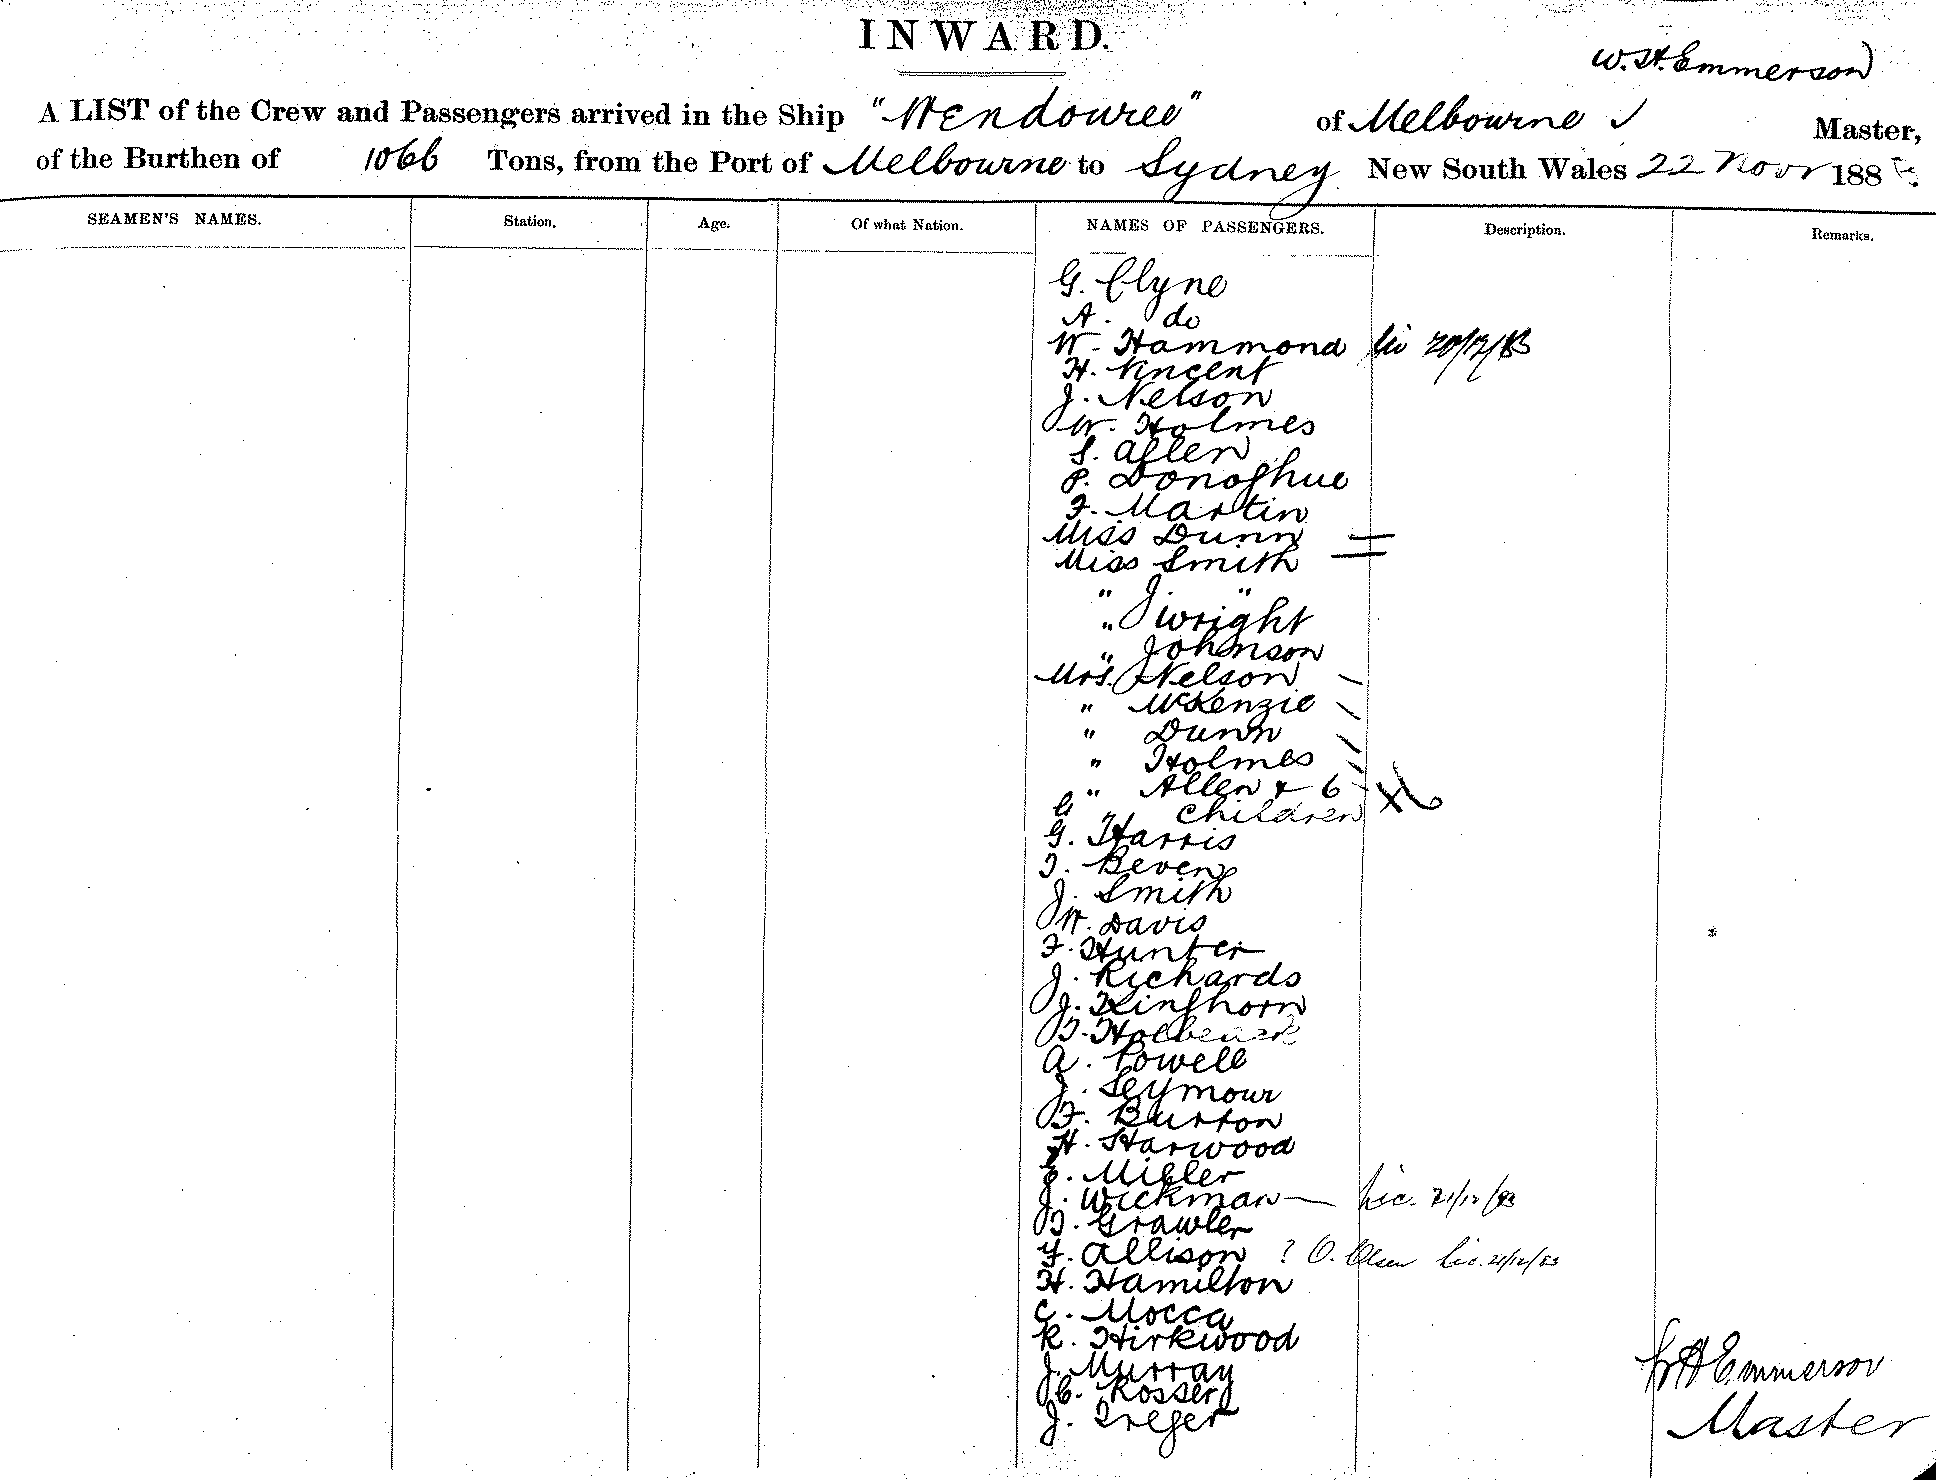 INWARD.
W. H. Emmerson
A LIST of the Crew and Passengers arrived in the Ship "Wendouree" of Melbourne Master,
of the Burthen of 1066 Tons, from the Port of Melbourne to Sydney New South Wales 22 Novr 188
SEAMEN'S NAMES. Station. Age. Of what Nation. NAMES OF PASSENGERS. Description. Remarks.
G. Clyne
A. do
W. Hammond
H. Vincent
J. Nelson
W. Holmes
S. Allen
P. Donoghue
F. Martin
Miss Dunn
Miss Smith
" J "
" Wright
" Johnson
Mrs. Nelson
" McKenzie
" Dunn
" Holmes
" Allen & 6
children
G. Harris
T. Beven
J. Smith
W. Davis
F. Hunter
J. Richards
J. Kinghorn
T.
A. Powell
J. Seymour
F. Burton
H. Harwood
Miller
J. Wickman — Lic. 21/12/83
T. Grawler
Allison ? O. Olsen Lic. 21/12/83
H. Hamilton
C. Mocca
R. Kirkwood
J. Murray
C. Rosser
J. Treger
W H Emmerson
Master